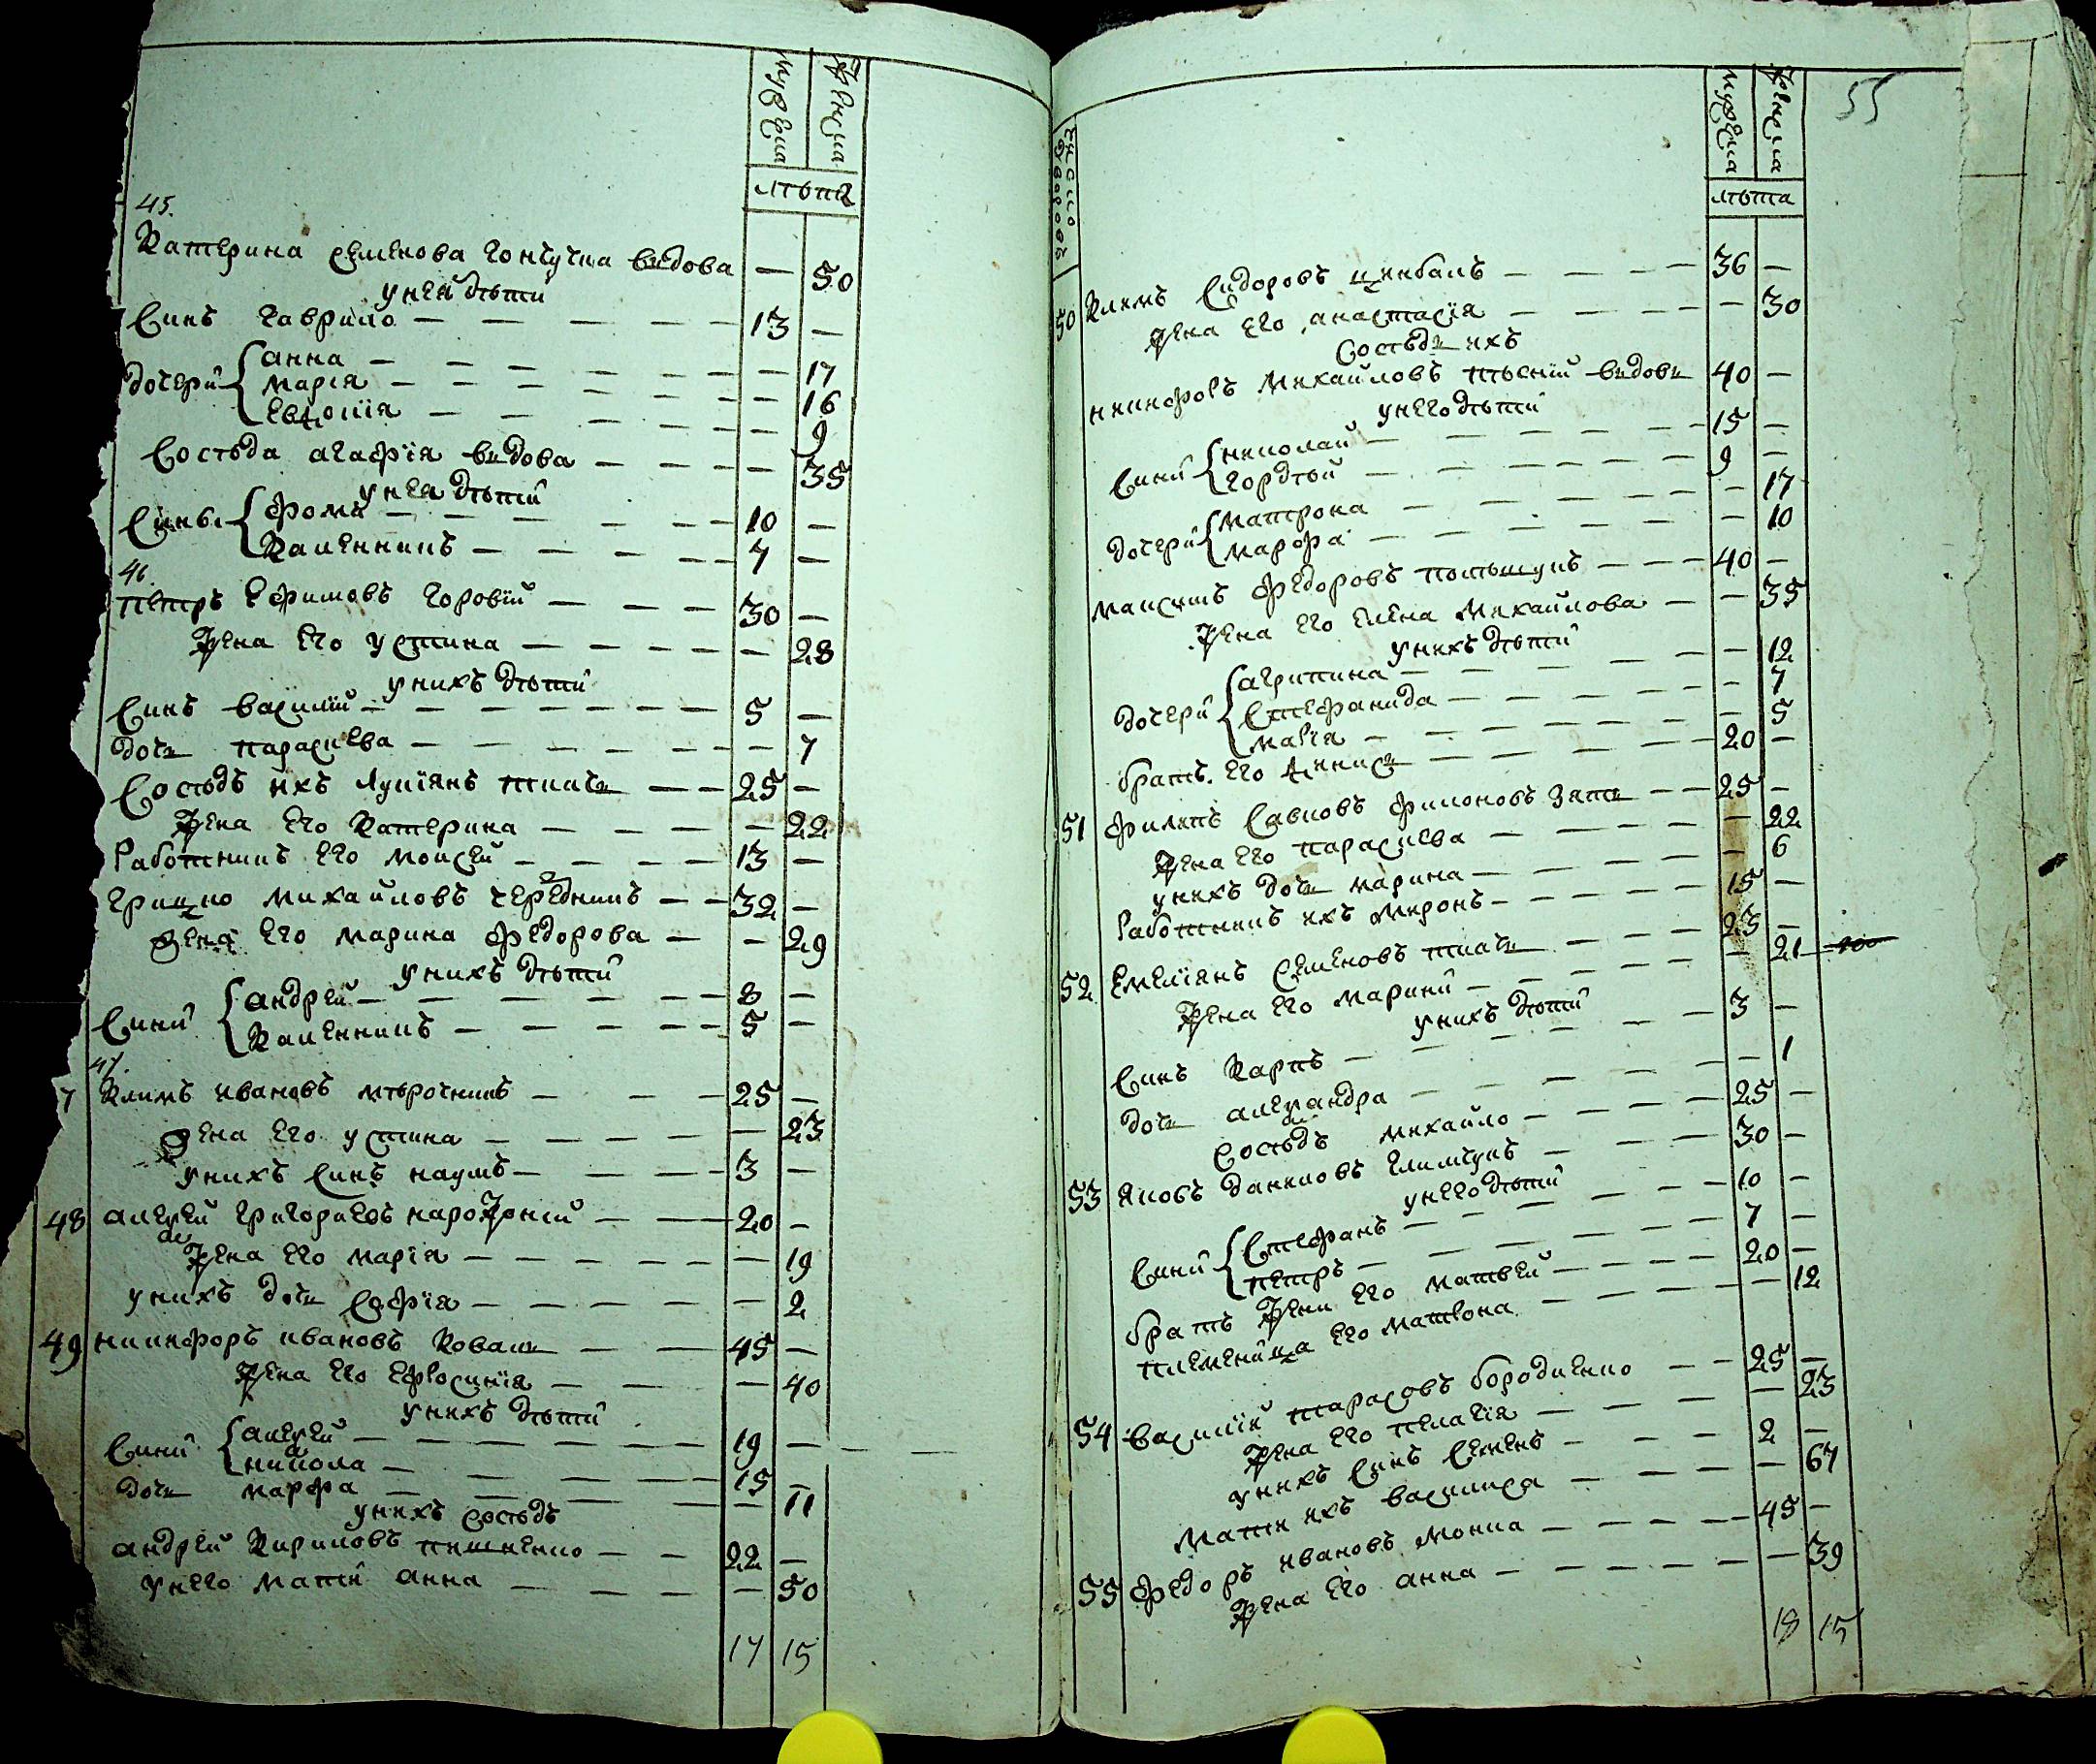 мужеска
женска
лѣта
45.
Катерина семенова гончучка вѣдова — 50
у неи дѣти
синъ гаврило — 13 —
дочери анна — 17
марія — 16
евдокія — 9
Состѣда агафія вѣдова — 35
у неи дѣти
сины фома — 10 —
Каленникъ — 7 —
46.
петръ ефимовъ коровій — 30 —
жена его устина — 28
у нихъ дѣти
Синъ василій — 5 —
дочь параскева — 7
Состѣдъ ихъ лукіянъ ткачь — 25 —
жена его Катерина — 22
Работникъ его моисей — 13 —
грицко михайловъ чередникъ — 32 —
жена его марина федорова — 29
у нихъ дѣти
Сини андрей — 8 —
Каленникъ — 5 —
47.
7 Климъ ивановъ мѣрочникъ — 25 —
жена его устина — 23
у нихъ синъ наумъ — 3 —
48 алексей григориевъ нарожній — 20 —
жена его марія — 19
у нихъ дочь софія — 2
49 никифоръ ивановъ Коваль — 45 —
жена его ефросинія — 40
у нихъ дѣти
Сини алексей — 19 —
никола — 15 —
дочь марфа — 11
у нихъ состѣдъ
андрей Кириловъ — 22 —
у него мати анна — 50
17 15
число дворовъ
мужеска
женска
лѣта
55
50 Климъ Сидоровъ цимбалъ — 36 —
жена его анастасія — 30
Состѣди ихъ
никифоръ михайловъ пѣсній вѣдовъ 40 —
у него дѣти
Сини николай — 15 —
гордѣй — 9 —
дочери матрона — 17
марфа — 10
максимъ федоровъ — 40 —
жена его елена михайлова — 35
у нихъ дѣти
дочери агрипина — 12
стефанида — 7
марія — 5
братъ его денисъ — 20 —
51 филипъ савковъ филоновъ зять — 25 —
жена его параскева — 22
у нихъ дочь марина — 6
Работникъ ихъ миронъ — 15 —
52 емеліянъ семеновъ ткачь — 23 —
жена его марина — 21
у нихъ дѣти
Синъ Карпъ — 3 —
дочь александра — 1
состѣдъ михайло — 25 —
53 яковъ даниловъ — 30 —
у него дѣти
Сини стефанъ — 10 —
петръ — 7 —
братъ жени его матвей — 20 —
племеница его матрона — 12
54 василій тарасовъ бородиенко — 25 —
жена его пелагія — 23
у нихъ синъ семенъ — 2 —
мати ихъ василиса — 67
55 федоръ ивановъ мокиа — 45 —
жена его анна — 39
18 15